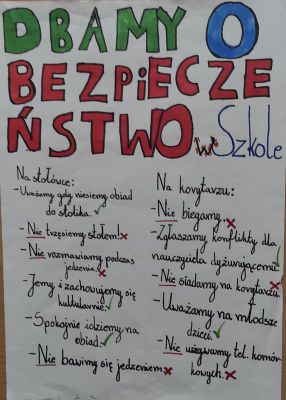 DBAMY O
BEZPIECZE
ŃSTWO w Szkole
Na stołówce:
-Uważamy gdy niesiemy obiad
do stolika.
- Nie trzęsiemy stołem!
- Nie rozmawiamy podczas
jedzenia.
- Jemy i zachowujemy się
kulturalnie.
- Spokojnie idziemy na
obiad.
- Nie bawimy się jedzeniem.
Na korytarzu:
- Nie biegamy.
-Zgłaszamy konflikty dla
nauczyciela dyżurującemu.
- Nie siadamy na korytarzu.
- Uważamy na młodsze
dzieci.
- Nie używamy tel. komór
kowych.